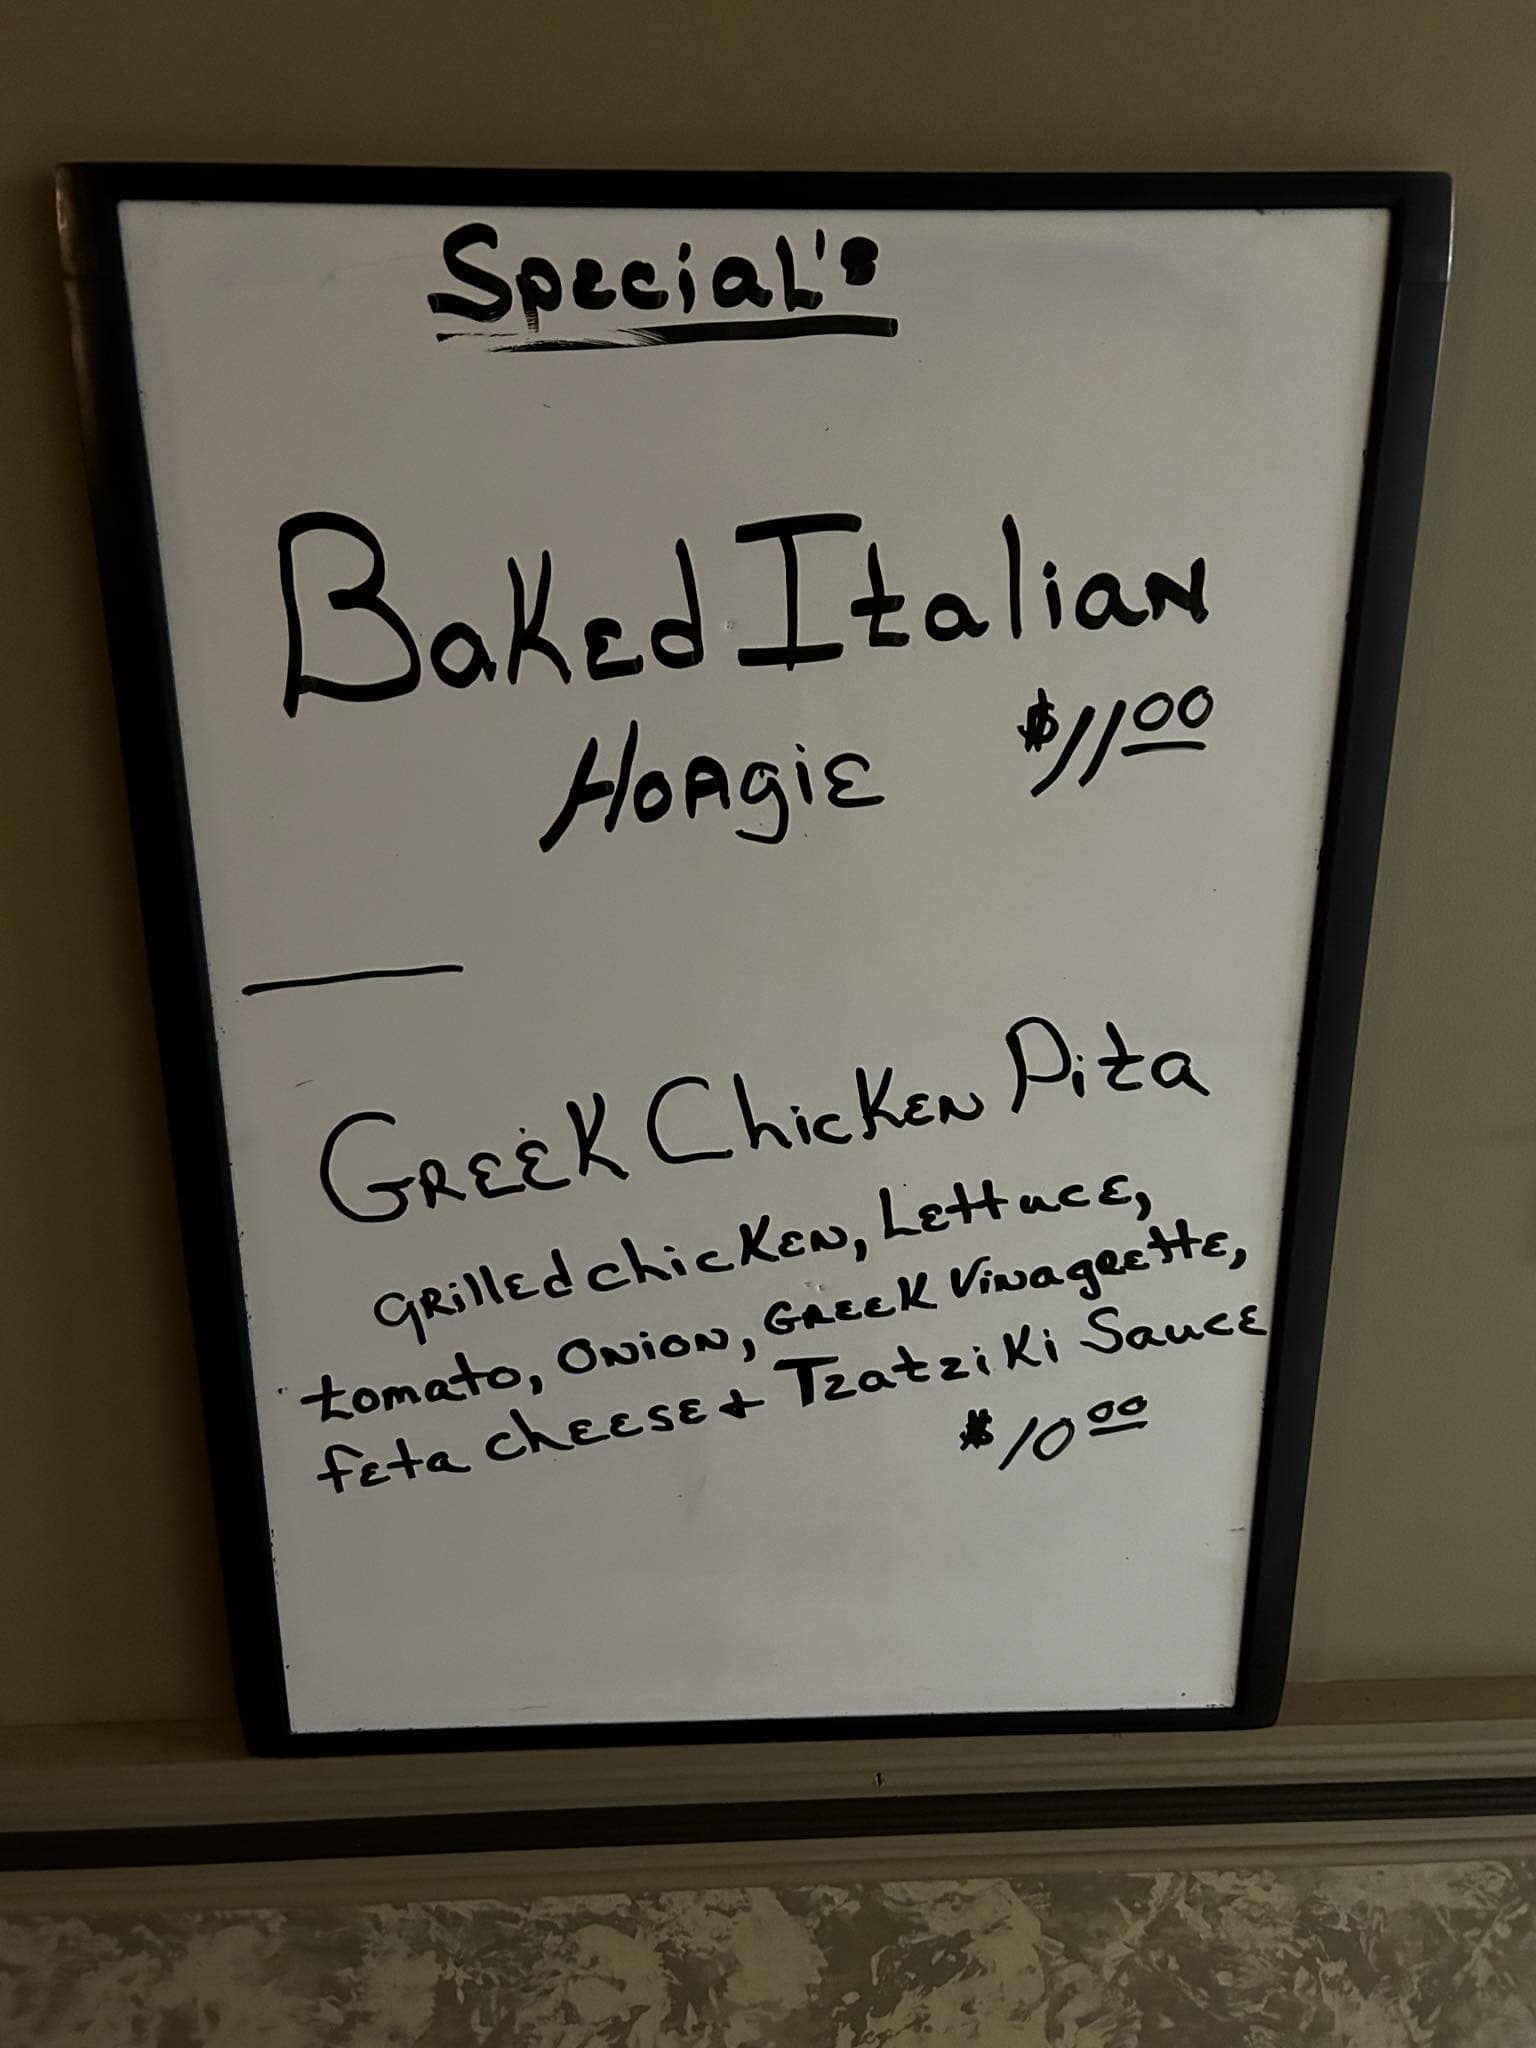 Special's
Baked Italian
Hoagie $11.00
Greek Chicken Pita
grilled chicken, Lettuce,
tomato, onion, Greek Vinagrette,
feta cheese + Tzatziki Sauce
$10.00